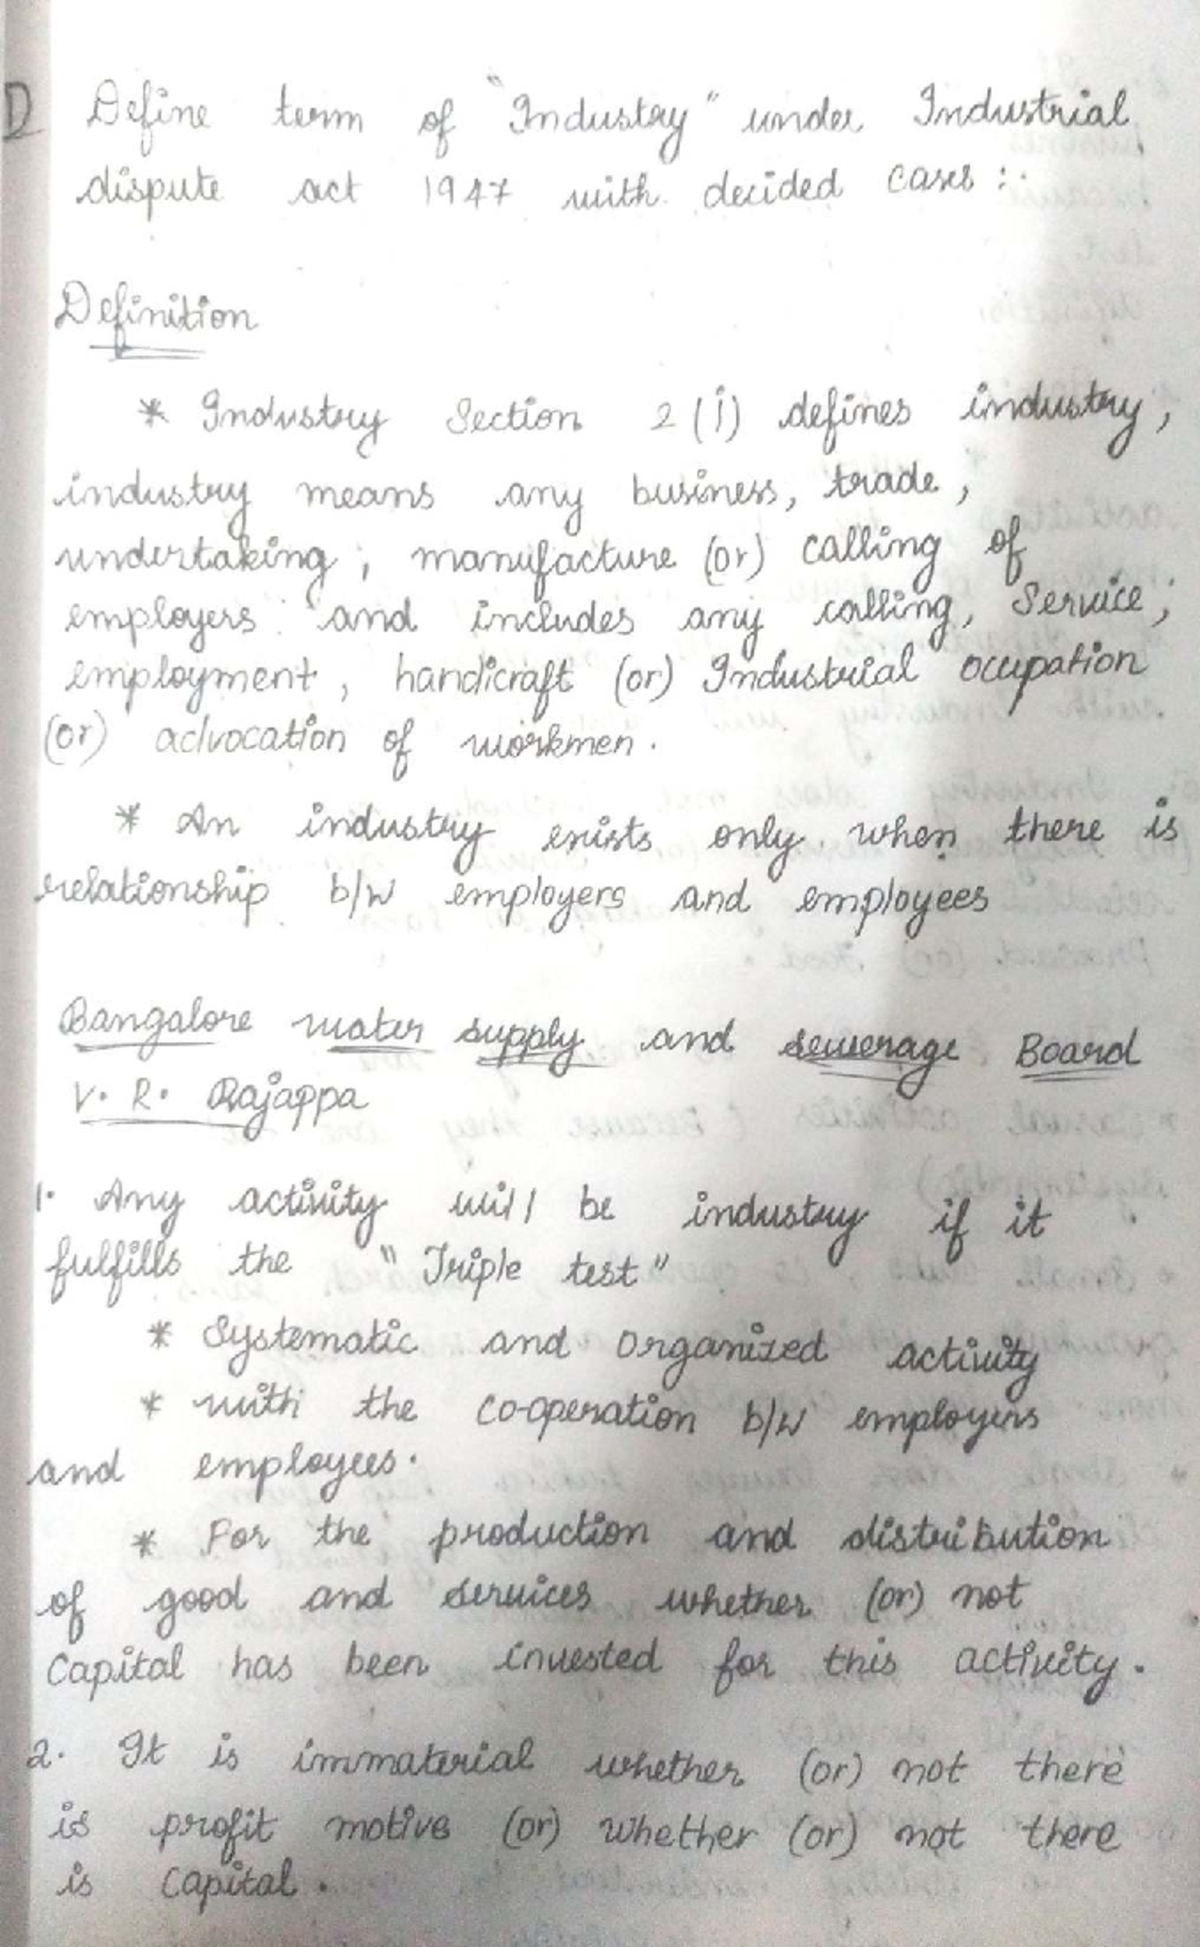 D Define term of "Industry" under Industrial
dispute act 1947 with decided cases :.
Definition
* Industry Section 2 (i) defines industry,
industry means any business, trade,
undertaking, manufacture (or) calling of
employers and includes any calling, Service,
employment, handicraft (or) Industrial occupation
(or) advocation of workmen.
* An industry exists only when there is
relationship b/w employers and employees
Bangalore water supply and sewerage Board
V. R. Rajappa
1. Any activity will be industry if it
fulfills the "Triple test"
* Systematic and Organized activity
* with the co-operation b/w employers
and employees.
* For the production and distribution
of good and services whether (or) not
Capital has been invested for this activity.
2. It is immaterial whether (or) not there
is profit motive (or) whether (or) not there
is capital.